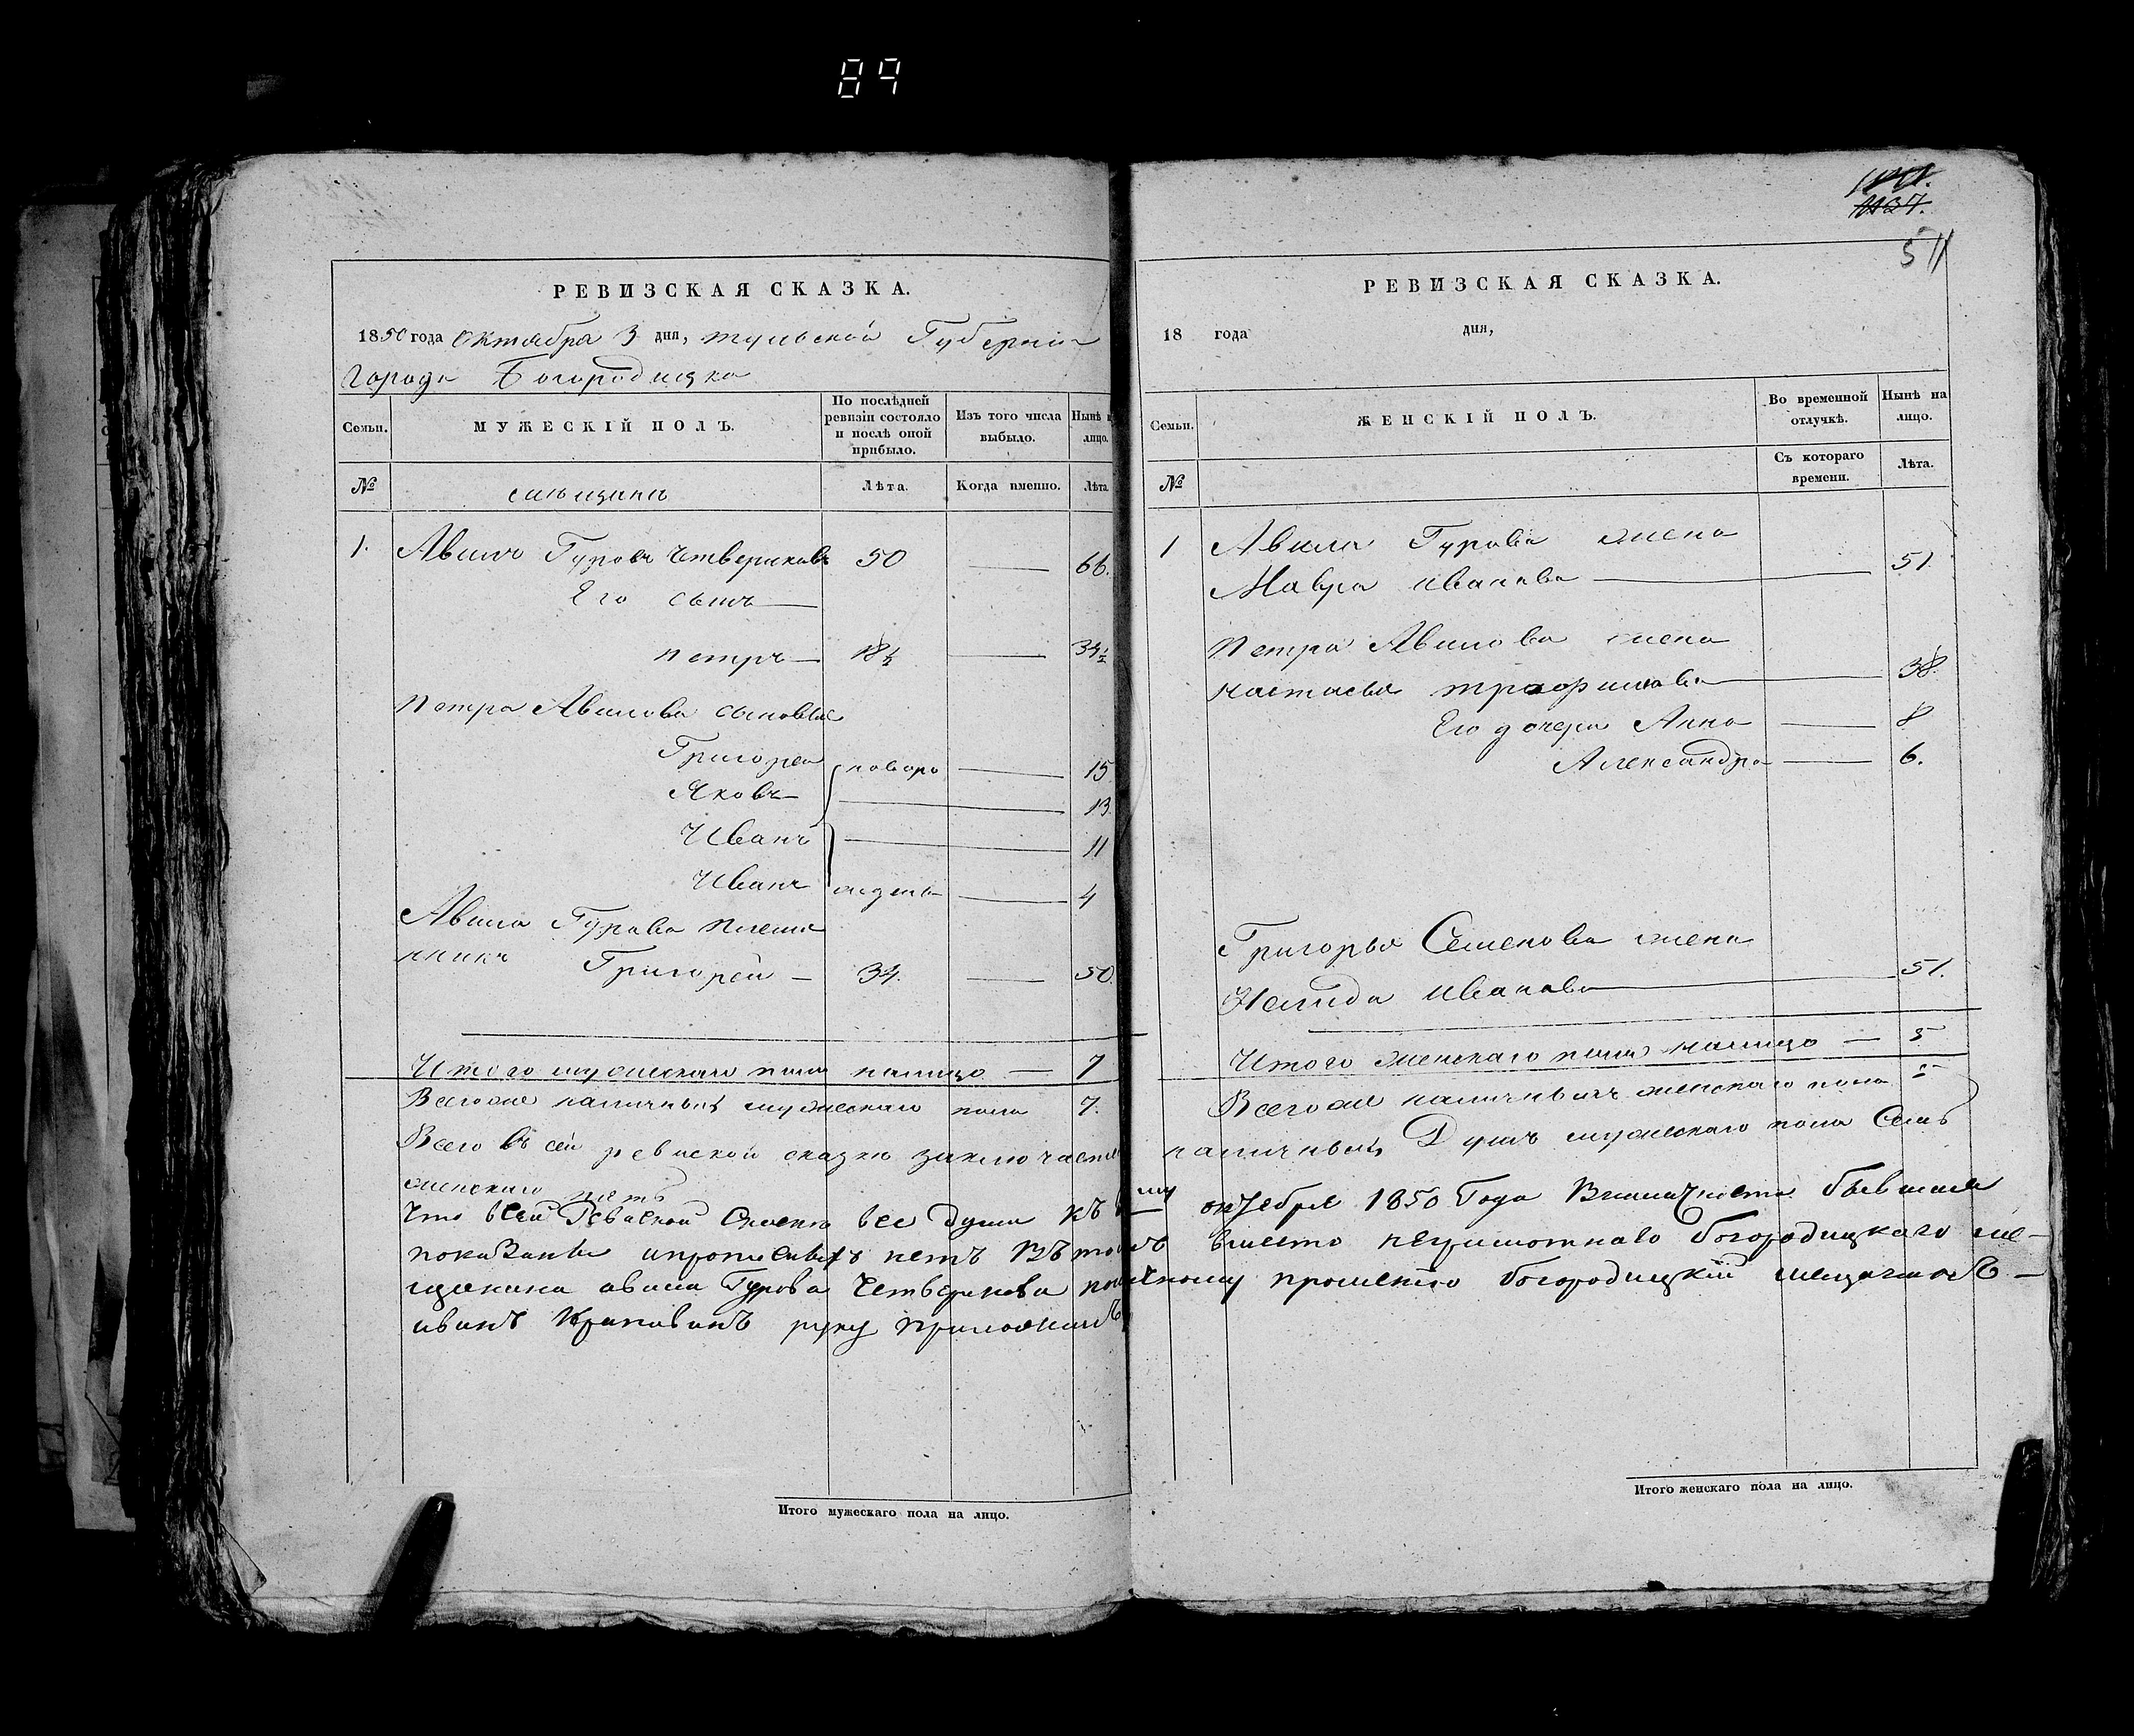 89
1137.
511
РЕВИЗСКАЯ СКАЗКА.
1850 года октября 3 дня, тульской Губернии
города Богородицка
Семьи.
МУЖЕСКІЙ ПОЛЪ.
По послѣдней ревизіи состояло и послѣ оной прибыло.
Изъ того числа выбыло.
Нынѣ на лицо.
№
Лѣта.
Когда именно.
Лѣта.
1. Авилъ Гуровъ Четвериковъ 50 — 66.
Его сынъ —
петръ — 18½ — 34½
Петра Авилова сыновья
Григорей новоро — 15
Яковъ — 13.
Иванъ — 11
Иванъ ждены — 4
Авила Гурова племя
нникъ Григорей — 34. — 50.
Итого мужескаго пола налицо — 7
Всегоже наличныхъ мужескаго пола 7.
Всего въ сей ревиской сказки заключается
женскаго пять
Что всей Ревиской Скаски все души къ
показаны ипрописныхъ нетъ Въ томъ
щанина авила Гурова Четверикова по
иванъ руку приложилъ
РЕВИЗСКАЯ СКАЗКА.
18 года дня,
Семьи.
ЖЕНСКІЙ ПОЛЪ.
Во временной отлучкѣ.
Нынѣ на лицо.
№
Съ котораго времени.
Лѣта.
1 Авила Гурова жена
Мавра иванова — 51.
Петра Авилова жена
настасья трофимова — 38.
Его дочери Анна — 8
Александра — 6.
Григорья Семенова жена
иванова — 51.
Итого женскаго пола налицо — 5
Всегоже наличныхъ женскаго пола 5
наличныхъ Душъ мужескаго пола Семь
октебря 1850 Года бывшия
вместо неграмотнаго богородицкаго ме-
прошению богородицкий мещанинъ —
Итого мужескаго пола на лицо.
Итого женскаго пола на лицо.